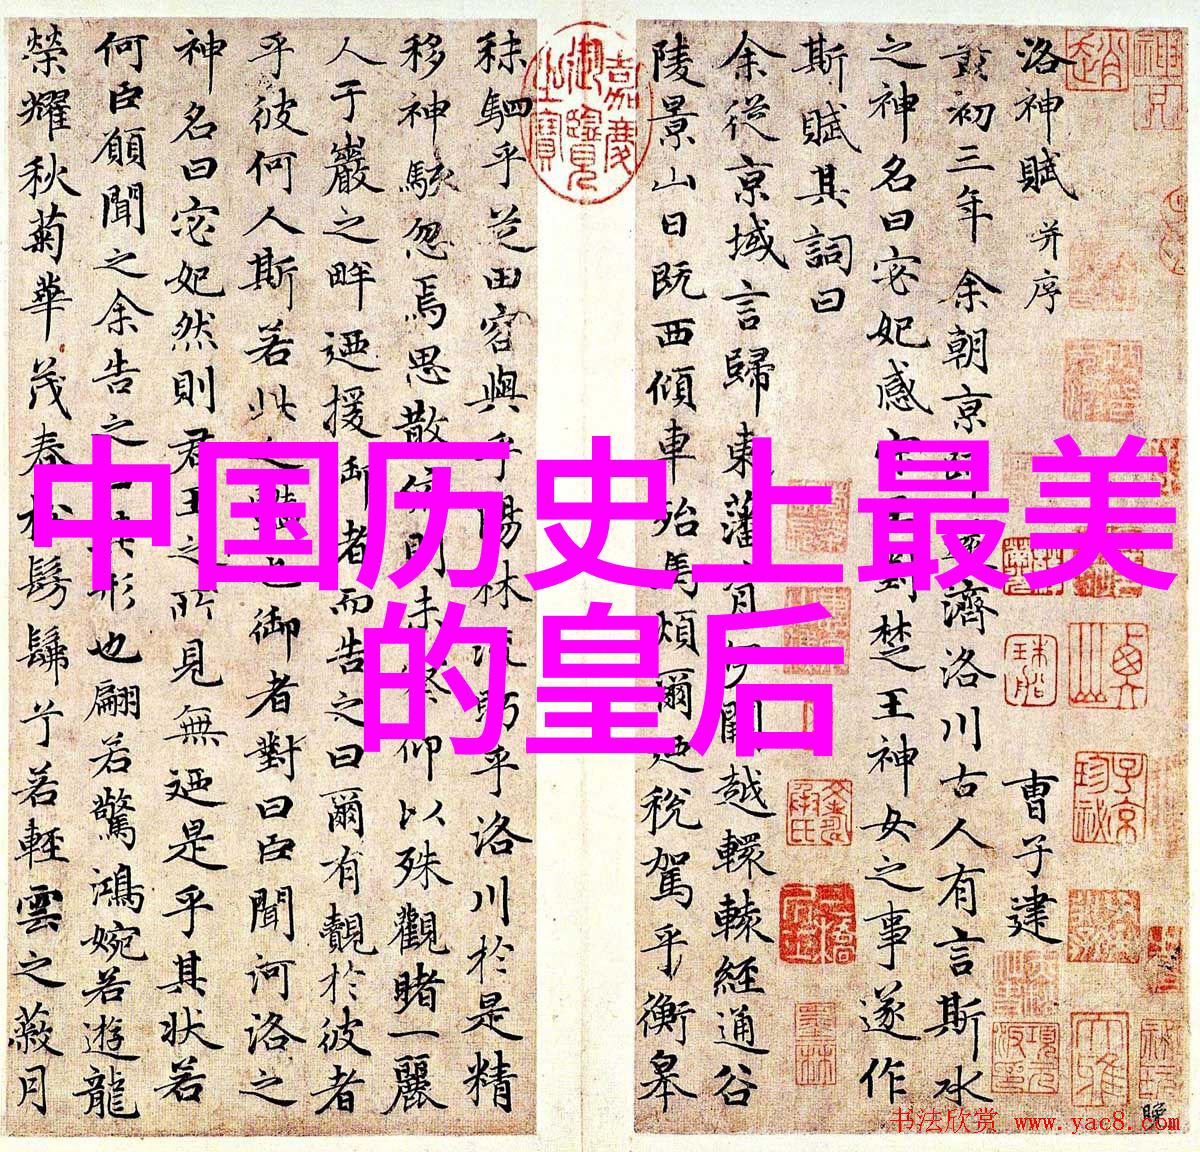 中国历史上最美
的皇后
洛神賦 并序 曹子建
黃初三年余朝京師還濟洛川古人有言斯水
之神名曰宓妃感宋玉對楚王神女之事遂作
斯賦其詞曰
余從京域言歸東藩背伊闕越轘轅經通谷
陵景山日既西傾車殆馬煩爾迺稅駕乎衡皋
嘉慶御覽之寶
秣駟乎芝田容與乎陽林流眄乎洛川於是精
移神駭忽焉思散俯則未察仰以殊觀睹一麗
人于巖之畔迺援御者而告之曰爾有覿於彼者
乎彼何人斯若此之豔也御者對曰臣聞河洛之
神名曰宓妃然則君王之所見無迺是乎其狀若
何臣願聞之余告之曰其形也翩若驚鴻婉若遊龍
榮耀秋菊華茂春松髣髴兮若輕雲之蔽月
书法欣赏 www.yac8.com